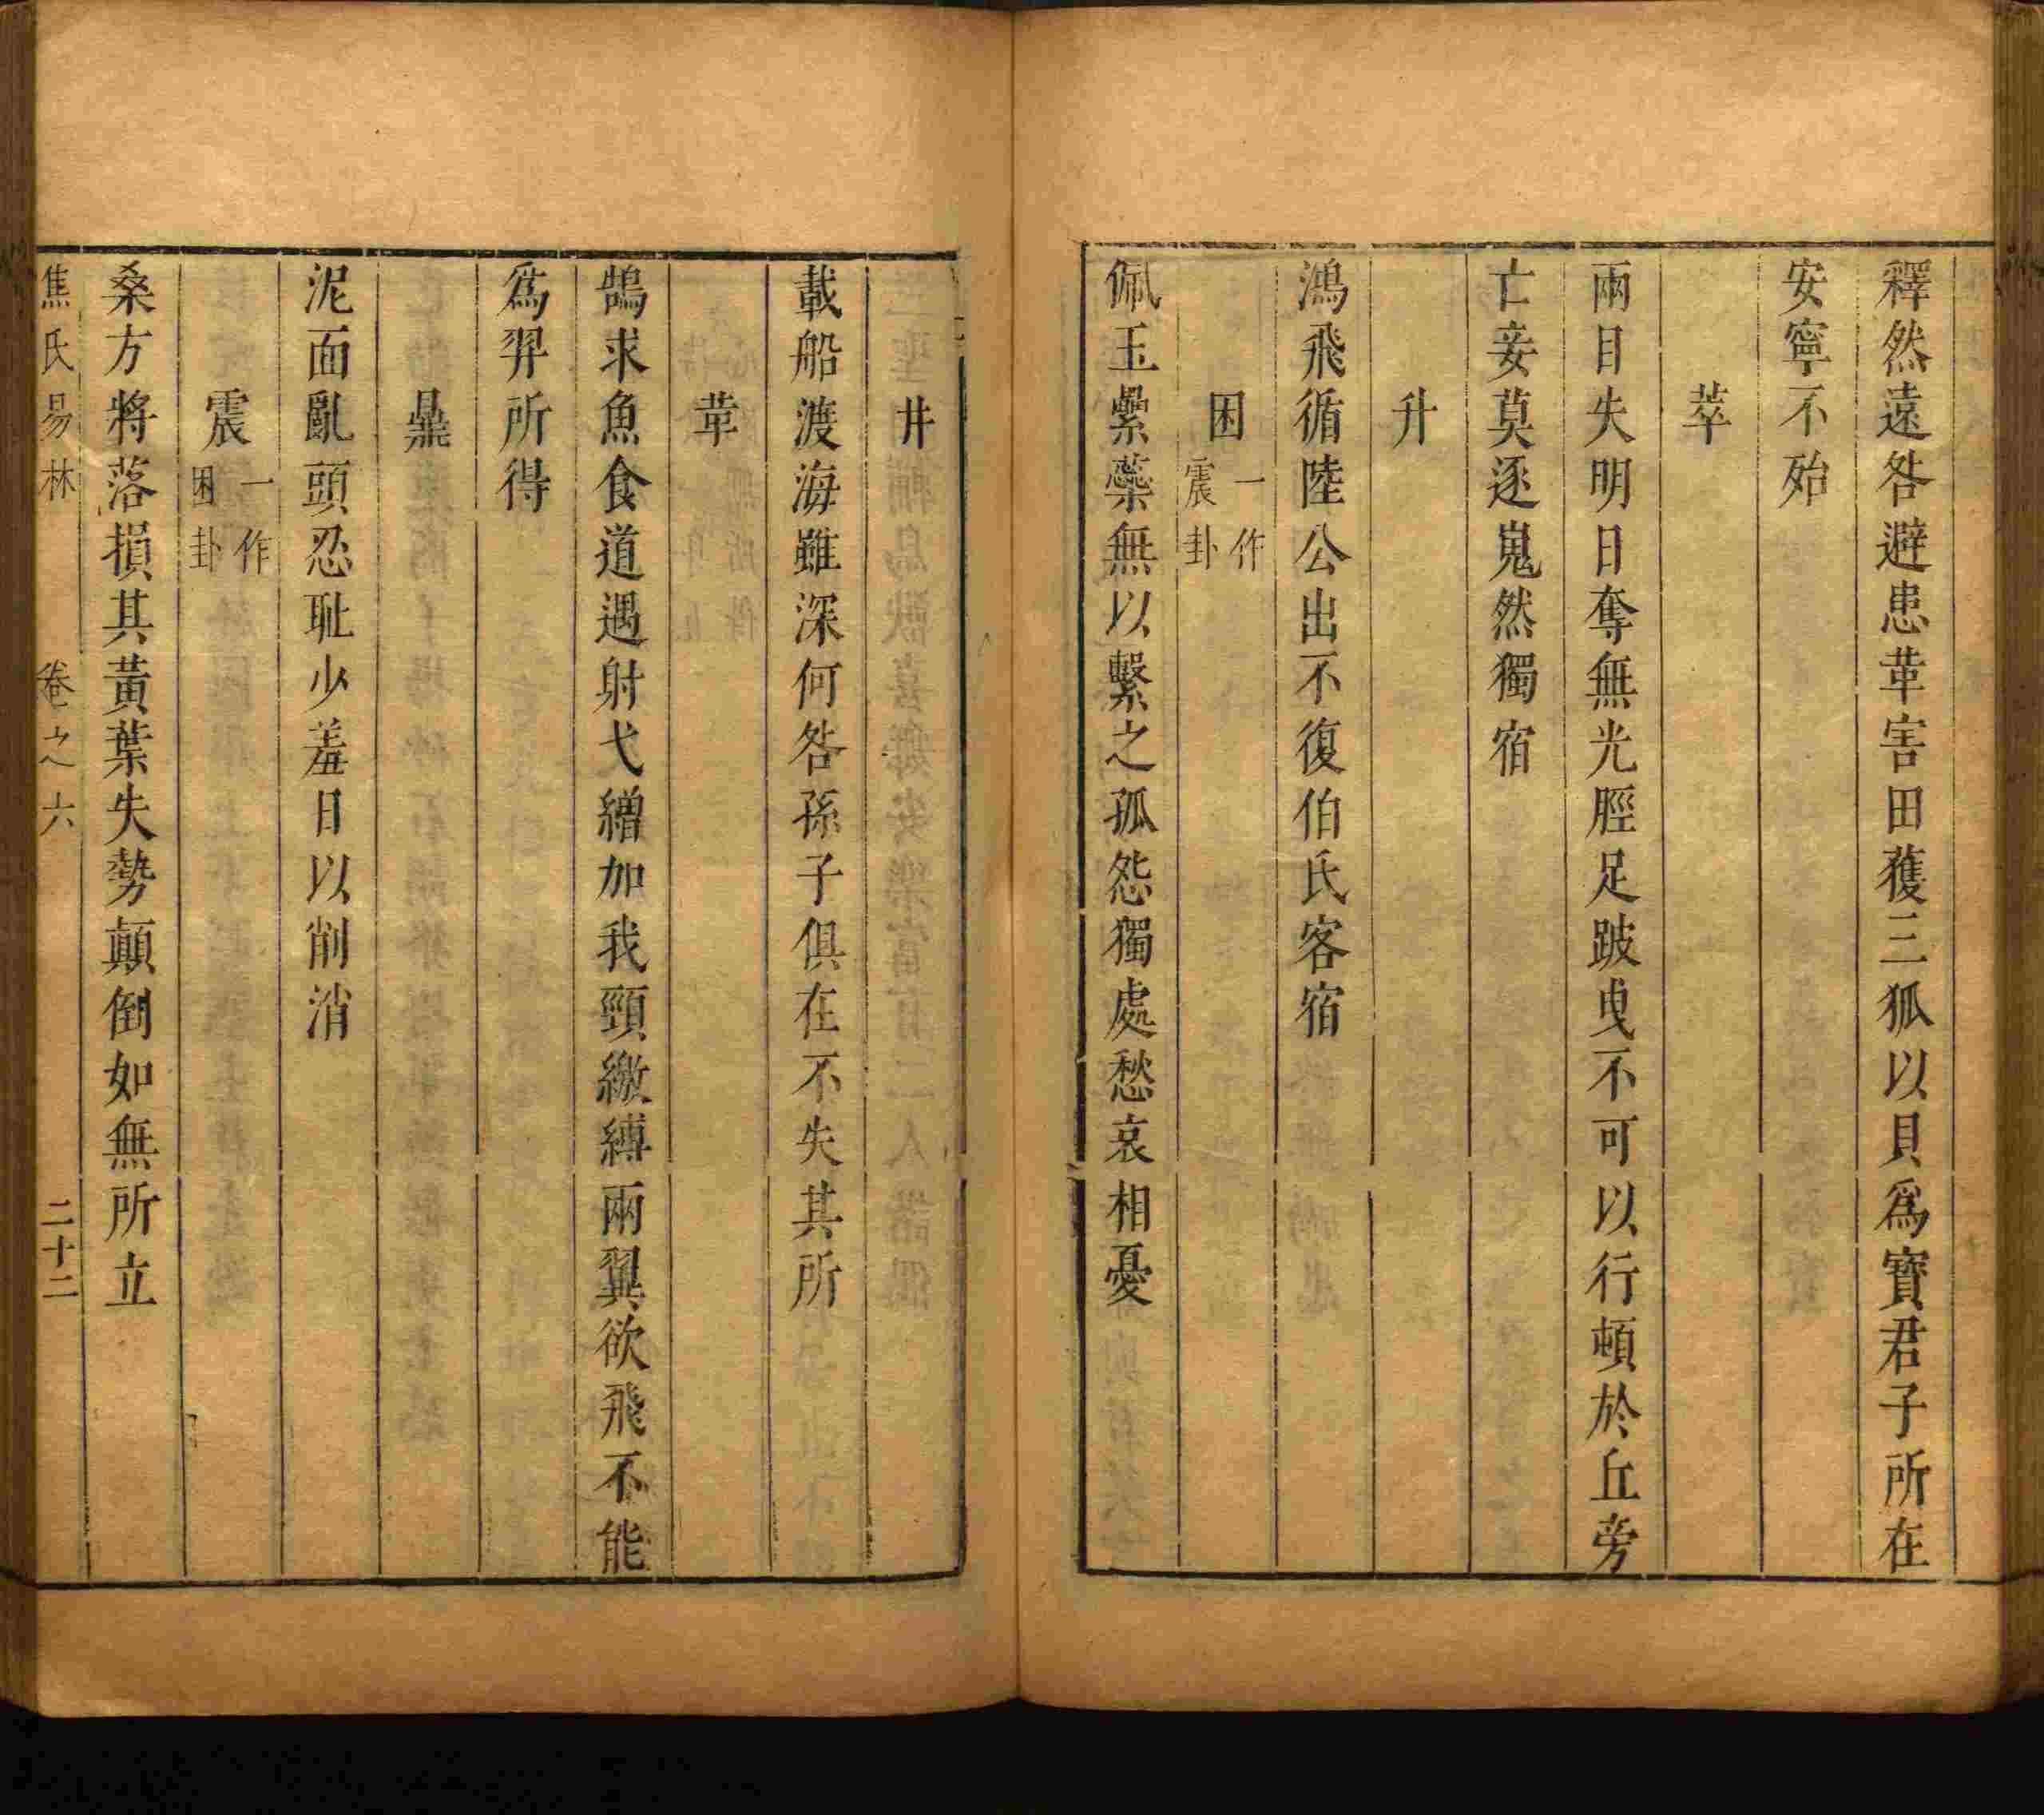 釋然遠咎避患革害田獲三狐以貝爲寶君子所在
安寧不殆
萃
兩目失明日奪無光脛足跛曳不可以行頓於丘旁
亡妾莫逐嵬然獨宿
升
鴻飛循陸公出不復伯氏客宿
困 一作震卦
佩玉纍蘂無以繫之孤怨獨處愁哀相憂
井
載船渡海雖深何咎孫子俱在不失其所
革
鵠求魚食道遇射弋繒加我頸繳縛兩翼欲飛不能
爲羿所得
鼎
泥面亂頭忍耻少羞日以削消
震 一作困卦
桑方將落損其黃葉失勢顛倒如無所立
焦氏易林 卷之六 二十二